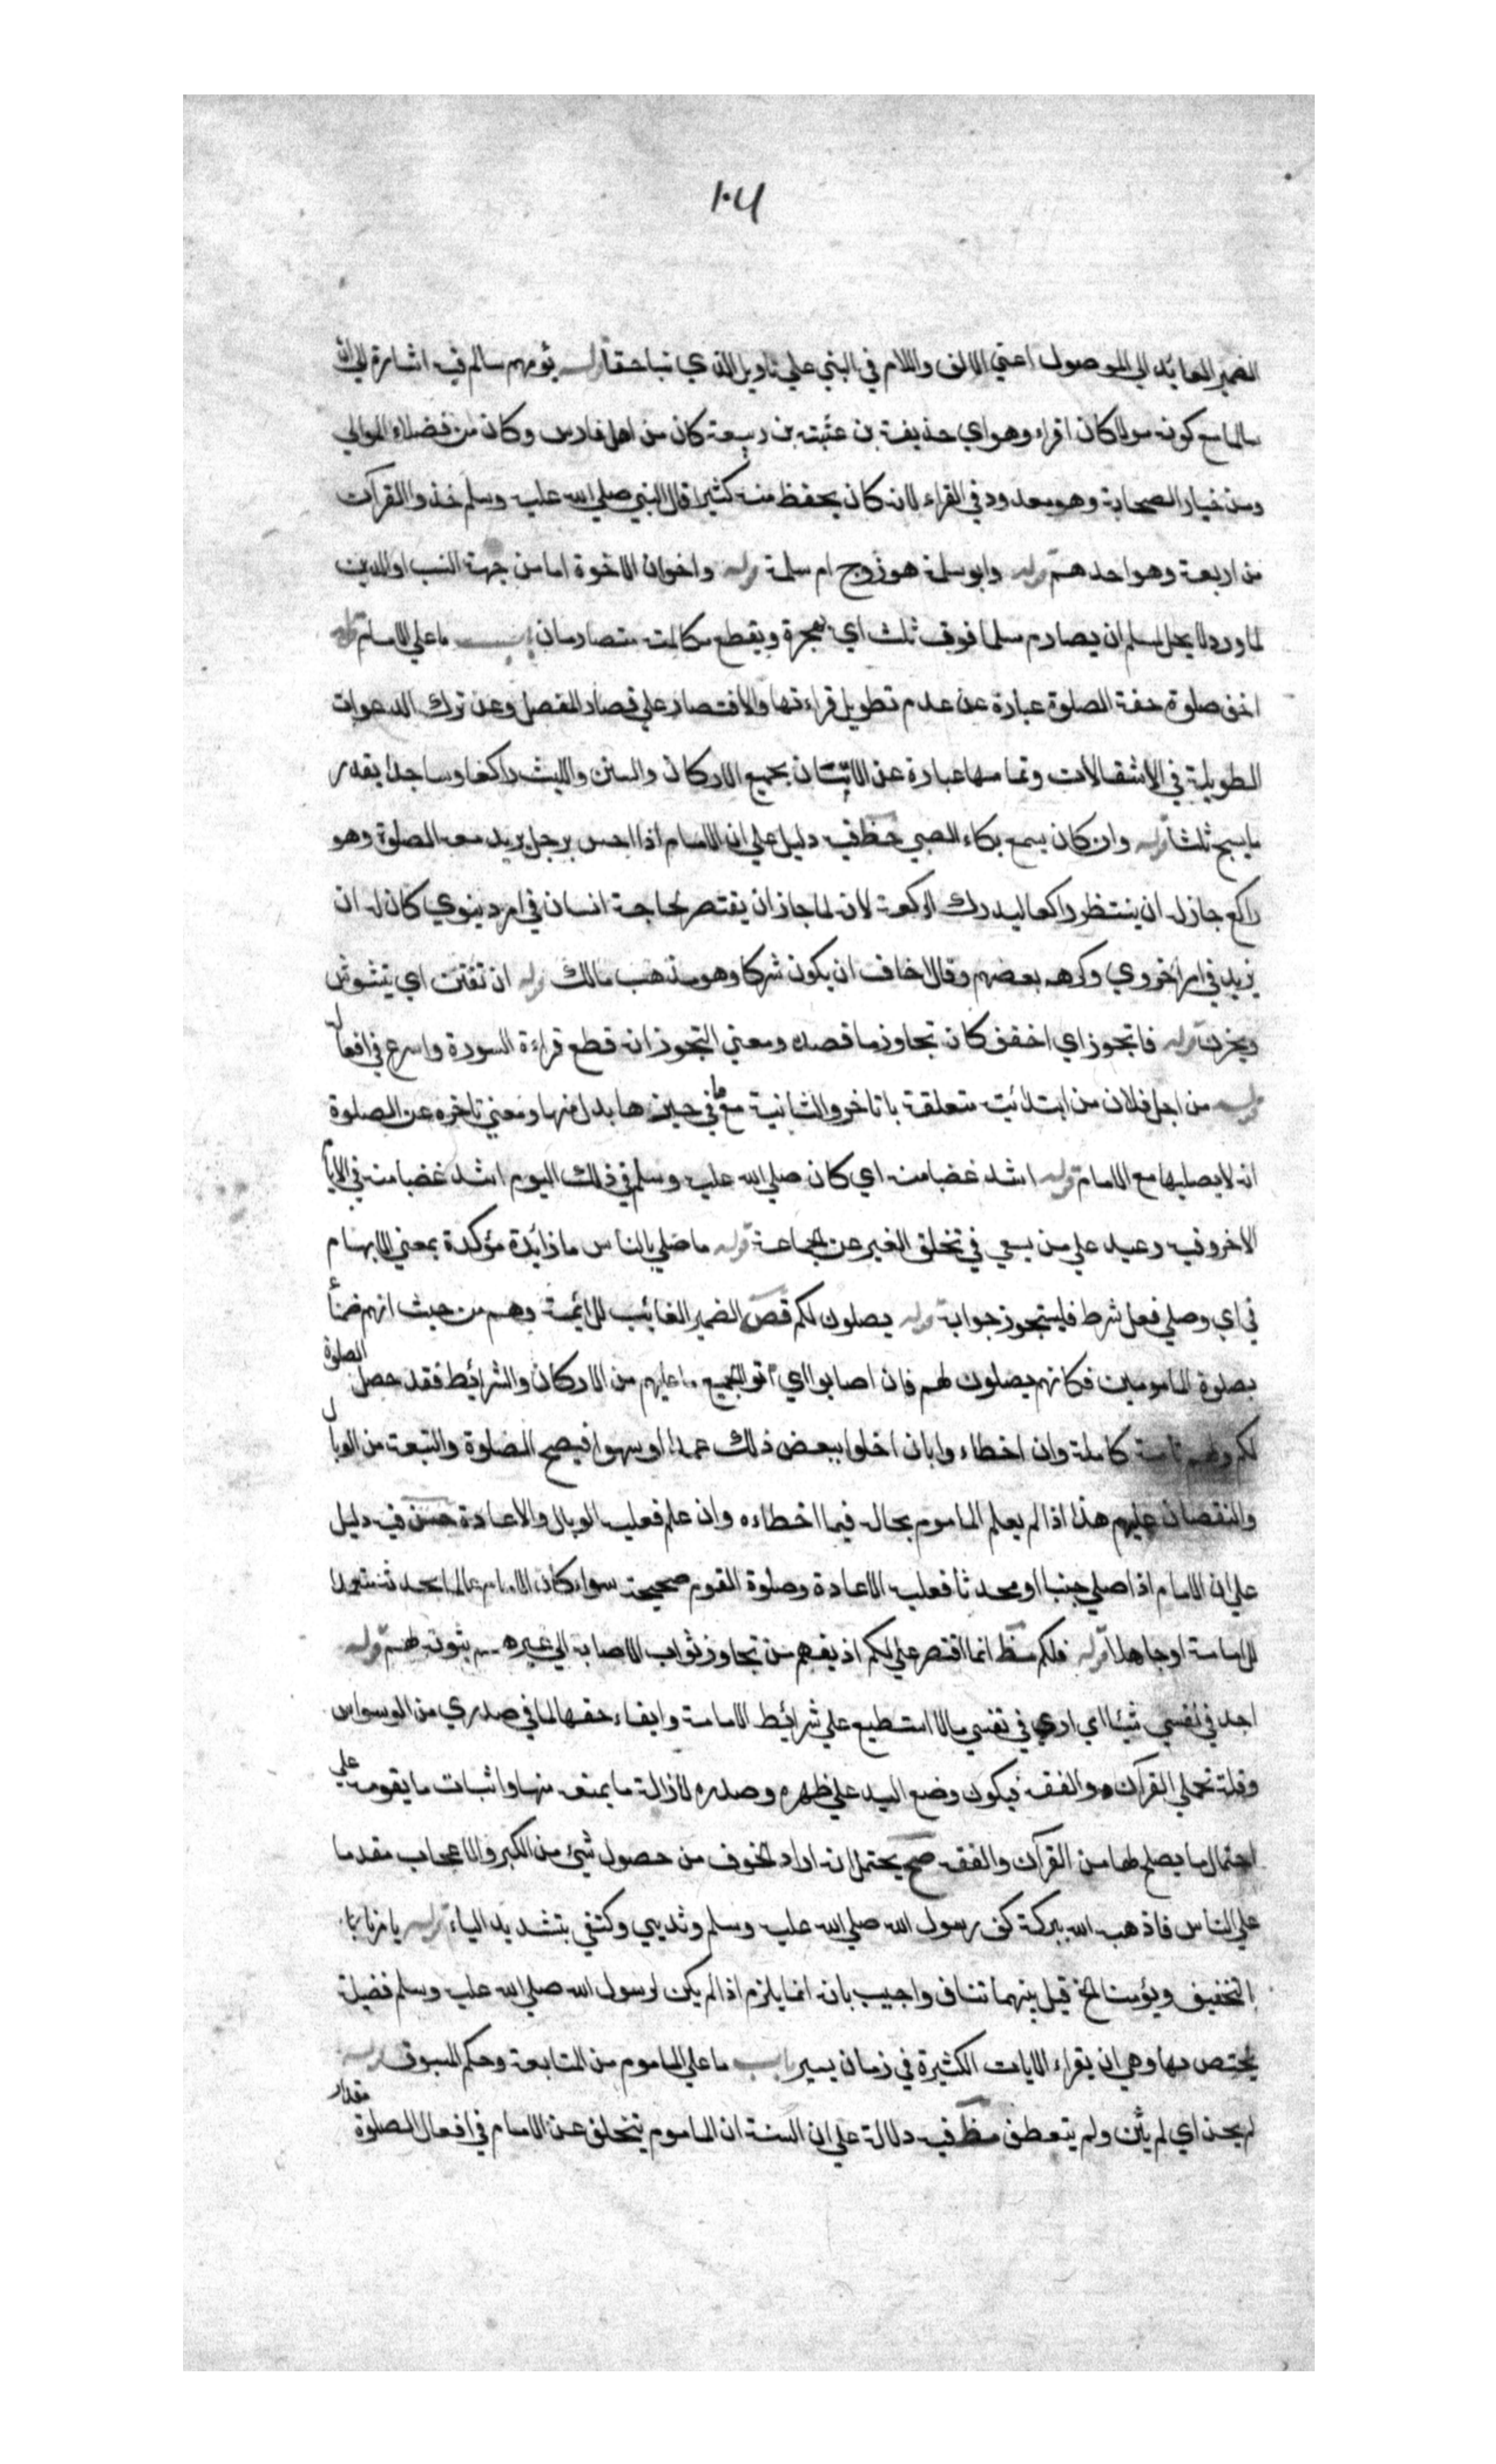 ١٠٧
الضمير العائد الي الموصول اعني الالف واللام في البني علي تاويل الذي نباحقا قوله يؤمهم سالم فيه اشارة الي ان
سالما مع كونه مولا كان اقراء وهو اي حذيفة بن عتبة بن ربيعة كان من اهل فارس وكان من فضلاء الموالي
ومن خيار الصحابة وهو معدود في القراء لانه كان يحفظ منه كثيرا قال النبي صلي الله عليه وسلم خذوا القرآن
من اربعة وهو احدهم قوله وابو سلمة هو زوج ام سلمة قوله واخوان الاخوة اما من جهة النسب او الدين
لما ورد لا يحل لمسلم ان يصادم مسلما فوق ثلث اي يهجرة ويقطع مكالمته متصادمان باب ما علي الامام قوله
اخف صلوة خفة الصلوة عبارة عن عدم تطويل قراءتها والاقتصار علي قصار المفصل وعن ترك الدعوات
الطويلة في الانتقالات وتمامها عبارة عن الاتيان بجميع الاركان والسنن واللبث راكعا وساجدا بقدر
ما يسبح ثلثا قوله وان كان يسمع بكاء الصبي خط فيه دليل علي ان الامام اذا احس برجل يريد معه الصلوة وهو
راكع جاز له ان ينتظر راكعا ليدرك الركعة لانه لما جاز ان يقتصر لحاجة انسان في امر دينوي كان له ان
يزيد في امر اخروي وكرهه بعضهم وقال اخاف ان يكون شركا وهو مذهب مالك قوله ان تفتن اي يتشوش
ويحزن قوله فاتجوز اي اخفف كان تجاوز ما قصده ومعني التجوز انه قطع قراءة السورة واسرع في افعاله
قوله من اجل فلان من ابتدائية متعلقة باتاخر والثانية مع ما في حيزها بدل منها ومعني تاخره عن الصلوة
انه لا يصليها مع الامام قوله اشد غضبا منه اي كان صلي الله عليه وسلم في ذلك اليوم اشد غضبا منه في الايام
الاخر وفيه وعيد علي من يسعي في تخلف الغير عن الجماعة قوله ما صلي بالناس ما زايدة مؤكدة بمعني الابهام
في اي وصلي فعل شرط فليتجوز جوابه قوله يصلون لكم قض الضمير الغائب للائمة وهم من حيث انهم ضمناء
بصلوة المامومين فكانهم يصلون لهم فان اصابوا اي اتوا بجميع ما عليهم من الاركان والشرائط فقد حصل الصلوة
لكم ولهم تامة كاملة وان اخطاء وا بان اخلوا ببعض ذلك عمدا او سهوا فيصح الصلوة والتبعة من الوبال
والنقصان عليهم هذا اذا لم يعلم الماموم بحاله فيما اخطاءه وان علم فعليه الوبال والاعادة حسن فيه دليل
علي ان الامام اذا صلي جنبا او محدثا فعليه الاعادة وصلوة القوم صحيحة سواء كان الامام عالما بحدثه متعمدا
للامامة او جاهلا قوله فلكم مظ انما اقتصر علي لكم اذ يفهم من تجاوز ثواب الاصابة الي غيرهم ثبوته لهم قوله
اجد في نفسي شيئا اي اري في نفسي مالا استطيع علي شرائط الامامة وايفاء حقها لما في صدري من الوسواس
وقلة تحملي القرآن والفقه فيكون وضع اليد علي ظهره وصدره لازالة ما يمنعه منها واثبات ما يقويه علي
احتمال ما يصلح لها من القرآن والفقه صح يحتمل انه اراد الخوف من حصول شيئ من الكبر والاعجاب مقدما
علي الناس فاذهبه الله ببركة كف رسول الله صلي الله عليه وسلم وثديي وكتفي بتشديد الياء قوله يامرنا
بالتخفيف ويؤمنا الخ قيل بينهما تناف واجيب بانه انما يلزم اذا لم يكن لرسول الله صلي الله عليه وسلم فضيلة
يختص بها وهي ان يقراء الايات الكثيرة في زمان يسير باب ما علي الماموم من المتابعة وحكم المسبوق قوله
لم يحن اي لم يثن ولم يتعطف مظ فيه دلالة علي ان السنة ان الماموم يتخلف عن الامام في افعال الصلوة مقدار